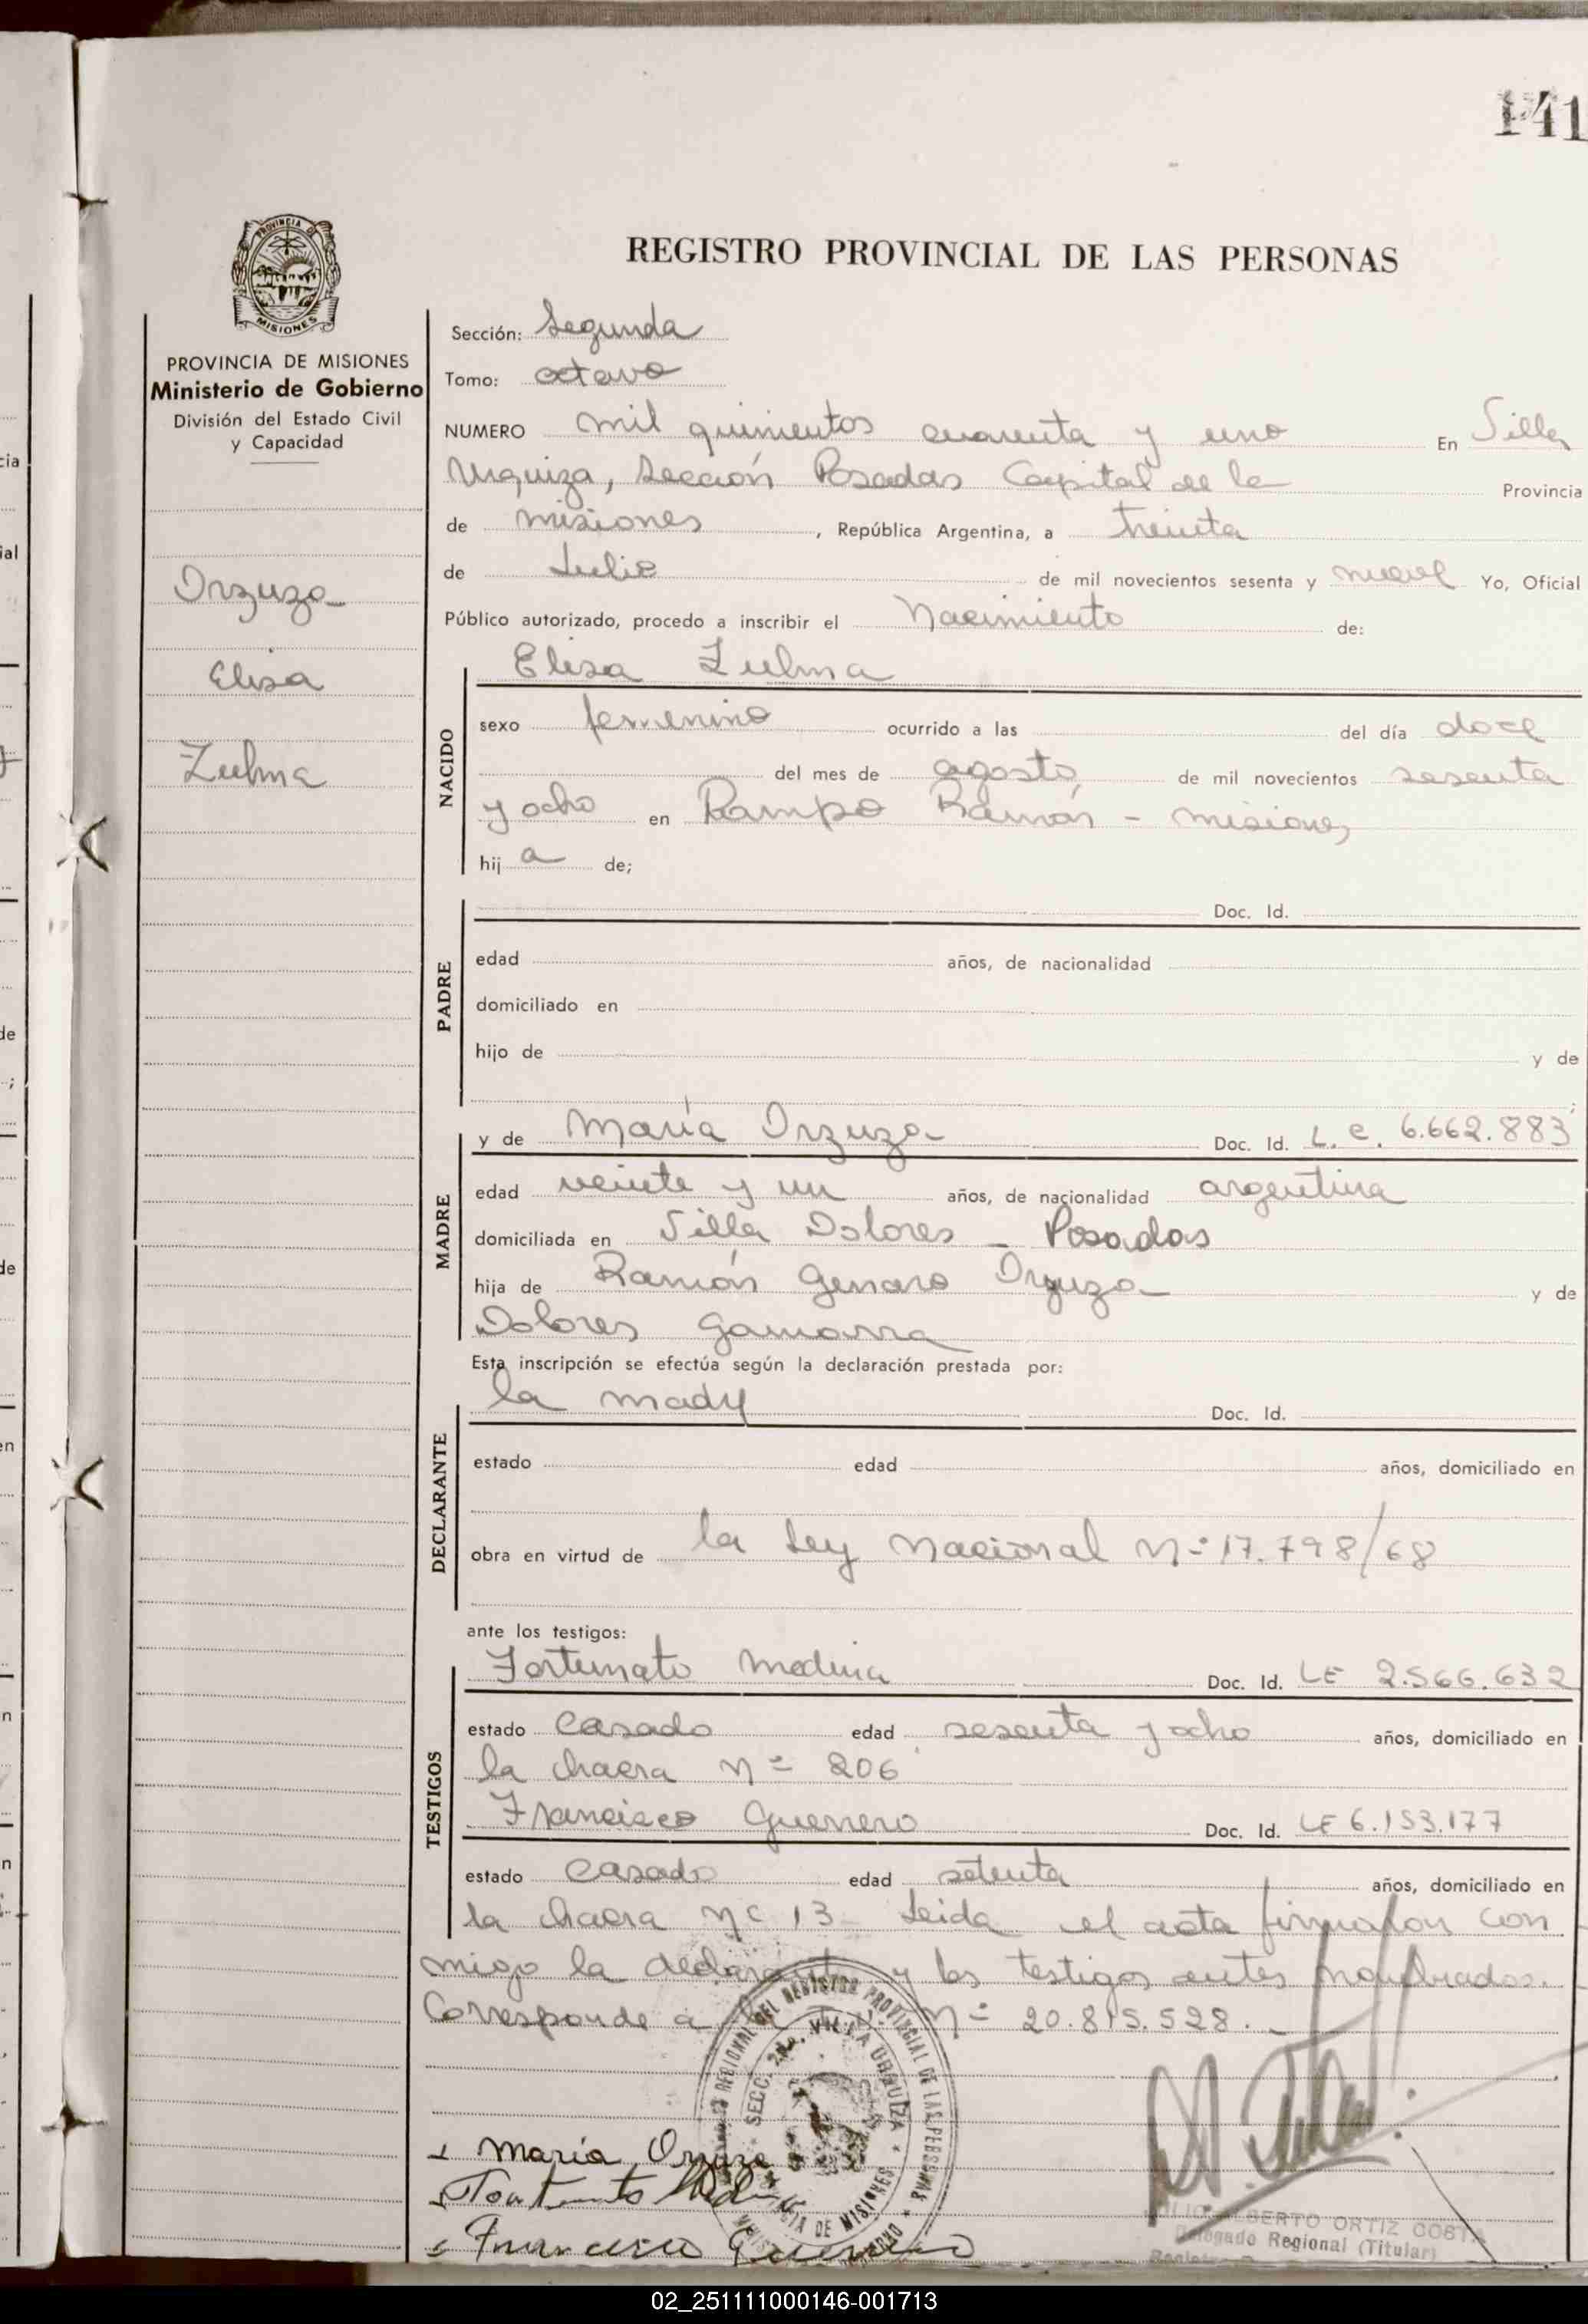 141
PROVINCIA DE MISIONES
Ministerio de Gobierno
División del Estado Civil
y Capacidad
Orzuza
Elisa
Zulma
REGISTRO PROVINCIAL DE LAS PERSONAS
Sección: Segunda
Tomo: octavo
NUMERO mil quinientos cuarenta y uno En Villa
Urquiza, Sección Posadas Capital de la Provincia
de misiones, República Argentina, a treinta
de Julio de mil novecientos sesenta y nueve Yo, Oficial
Público autorizado, procedo a inscribir el Nacimiento de:
NACIDO
Elisa Zulma
sexo femenino ocurrido a las del día doce
del mes de agosto de mil novecientos sesenta
y ocho en Rampo Ramón - misiones
hija de;
PADRE
Doc. Id.
edad años, de nacionalidad
domiciliado en
hijo de y de
MADRE
y de María Orzuza Doc. Id. L. C. 6.662.883
edad veinte y un años, de nacionalidad argentina
domiciliada en Villa Dolores - Posadas
hija de Ramón Genaro Orzuza y de
Dolores Gamarra
Esta inscripción se efectúa según la declaración prestada por:
DECLARANTE
la madre Doc. Id.
estado edad años, domiciliado en
obra en virtud de la Ley Nacional Nº 17.798/68
ante los testigos:
TESTIGOS
Fortunato Medina Doc. Id. LE 2.566.632
estado casado edad sesenta y ocho años, domiciliado en
la chacra Nº 206
Francisco Guerrero Doc. Id. LE 6.153.177
estado casado edad setenta años, domiciliado en
la chacra Nº 13 - Leida el acta firmaron con
migo la declarante y los testigos antes nombrados.
Corresponde a Nº 20.815.528. -
María Orzuza
Francisco Guerrero
REGIONAL DEL REGISTRO PROVINCIAL DE LAS PERSONAS
SECC. 2da. VILLA URQUIZA
DE MISIONES
ALBERTO ORTIZ COSTA
Delegado Regional (Titular)
02_251111000146-001713